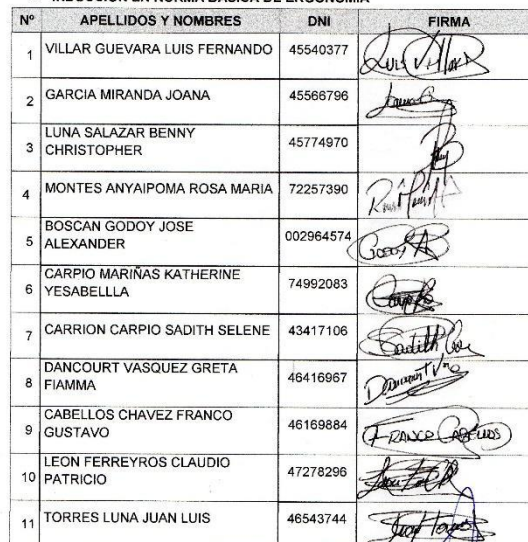 INDUCIÓN EN NORMA BÁSICA DE ERGONOMÍA
Nº APELLIDOS Y NOMBRES DNI FIRMA
1 VILLAR GUEVARA LUIS FERNANDO 45540377 Luis Villar
2 GARCIA MIRANDA JOANA 45566796
3 LUNA SALAZAR BENNY
CHRISTOPHER 45774970
4 MONTES ANYAIPOMA ROSA MARIA 72257390
5 BOSCAN GODOY JOSE
ALEXANDER 002964574 Godoy
6 CARPIO MARIÑAS KATHERINE
YESABELLLA 74992083
7 CARRION CARPIO SADITH SELENE 43417106 Sadith
8 DANCOURT VASQUEZ GRETA
FIAMMA 46416967 Dancourt
9 CABELLOS CHAVEZ FRANCO
GUSTAVO 46169884 FRANCO CABELLOS
10 LEON FERREYROS CLAUDIO
PATRICIO 47278296
11 TORRES LUNA JUAN LUIS 46543744 Juan Torres